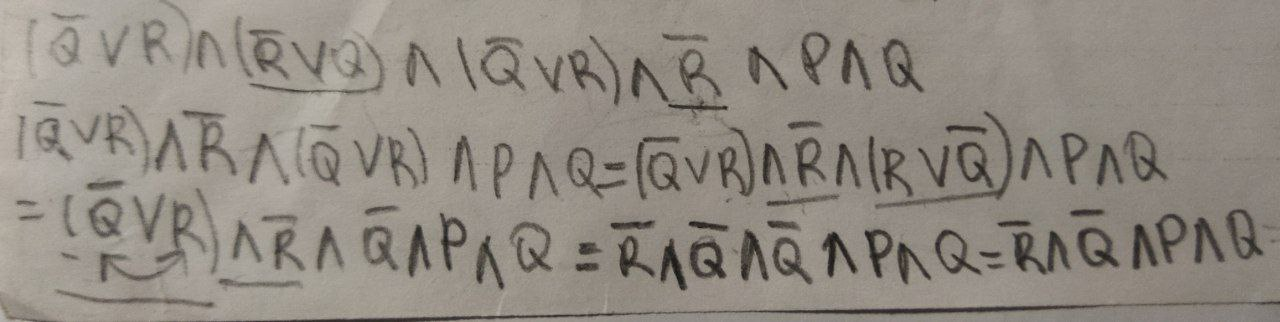 (Q̅ ∨ R) ∧ (R̅ ∨ Q) ∧ (Q̅ ∨ R) ∧ R̅ ∧ P ∧ Q
(Q̅ ∨ R) ∧ R̅ ∧ (Q̅ ∨ R) ∧ P ∧ Q = (Q̅ ∨ R) ∧ R̅ ∧ (R ∨ Q̅) ∧ P ∧ Q
= (Q̅ ∨ R) ∧ R̅ ∧ Q̅ ∧ P ∧ Q = R̅ ∧ Q̅ ∧ Q̅ ∧ P ∧ Q = R̅ ∧ Q̅ ∧ P ∧ Q =